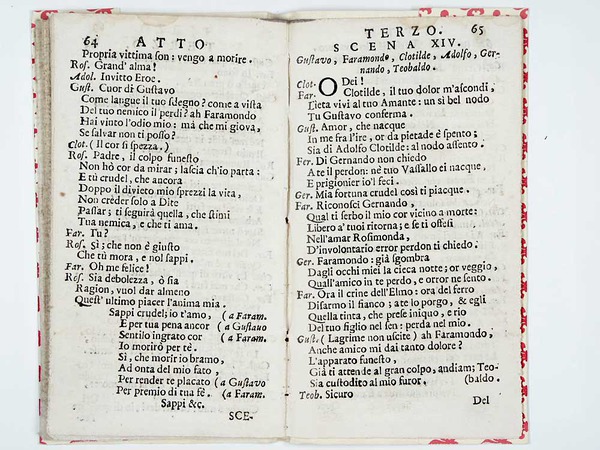 64 ATTO
Propria vittima son: vengo a morire.
Ros. Grand' alma!
Adol. Invitto Eroe.
Gust. Cuor di Gustavo
Come langue il tuo sdegno? come a vista
Del tuo nemico il perdi? ah Faramondo
Hai vinto l'odio mio: mà che mi giova,
Se salvar non ti posso?
Clot. (Il cor si spezza.)
Ros. Padre, il colpo funesto
Non hò cor da mirar; lascia ch'io parta:
E tù crudel, che ancora
Doppo il divieto mio sprezzi la vita,
Non crèder solo a Dite
Passar; ti seguirà quella, che stimi
Tua nemica, e che ti ama.
Far. Tu?
Ros. Sì; che non è giusto
Che tù mora, e nol sappi.
Far. Oh me felice!
Ros. Sia debolezza, ò sia
Ragion, vuol dar almeno
Quest' ultimo piacer l'anima mia.
Sappi crudel; io t'amo, (a Faram.
E per tua pena ancor (a Gustavo
Sentilo ingrato cor (a Faram.
Io morirò per tè.
Sì, che morir io bramo,
Ad onta del mio fato,
Per render te placato (a Gustavo
Per premio di tua fè. (a Faram.
Sappi &c.
SCE-
TERZO. 65
SCENA XIV.
Gustavo, Faramondo, Clotilde, Adolfo, Ger-
nando, Teobaldo.
Clot. O Dei!
Far. Clotilde, il tuo dolor m'ascondi,
Lieta vivi al tuo Amante: un sì bel nodo
Tu Gustavo conferma.
Gust. Amor, che nacque
In me fra l'ire, or da pietade è spento;
Sia di Adolfo Clotilde: al nodo assento.
Fer. Di Gernando non chiedo
A te il perdon: nè tuo Vassallo ei nacque,
E prigionier io'l feci.
Ger. Mia fortuna crudel così ti piacque.
Far. Riconosci Gernando,
Qual ti serbo il mio cor vicino a morte:
Libero a' tuoi ritorna; e se ti offesi
Nell'amar Rosimonda,
D'involontario error perdon ti chiedo.
Ger. Faramondo: già sgombra
Dagli occhi miei la cieca notte; or veggio,
Quall'amico in te perdo, e orror ne sento.
Far. Ora il crine dell'Elmo: ora del ferro
Disarmo il fianco; ate lo porgo, & egli
Quella tinta, che prese iniquo, e rio
Del tuo figlio nel sen: perda nel mio.
Gust. (Lagrime non uscite) ah Faramondo,
Anche amico mi dai tanto dolore?
L'apparato funesto,
Già ti attende al gran colpo, andiam; Teo-
Sia custodito al mio furor. (baldo.
Teob. Sicuro
Del